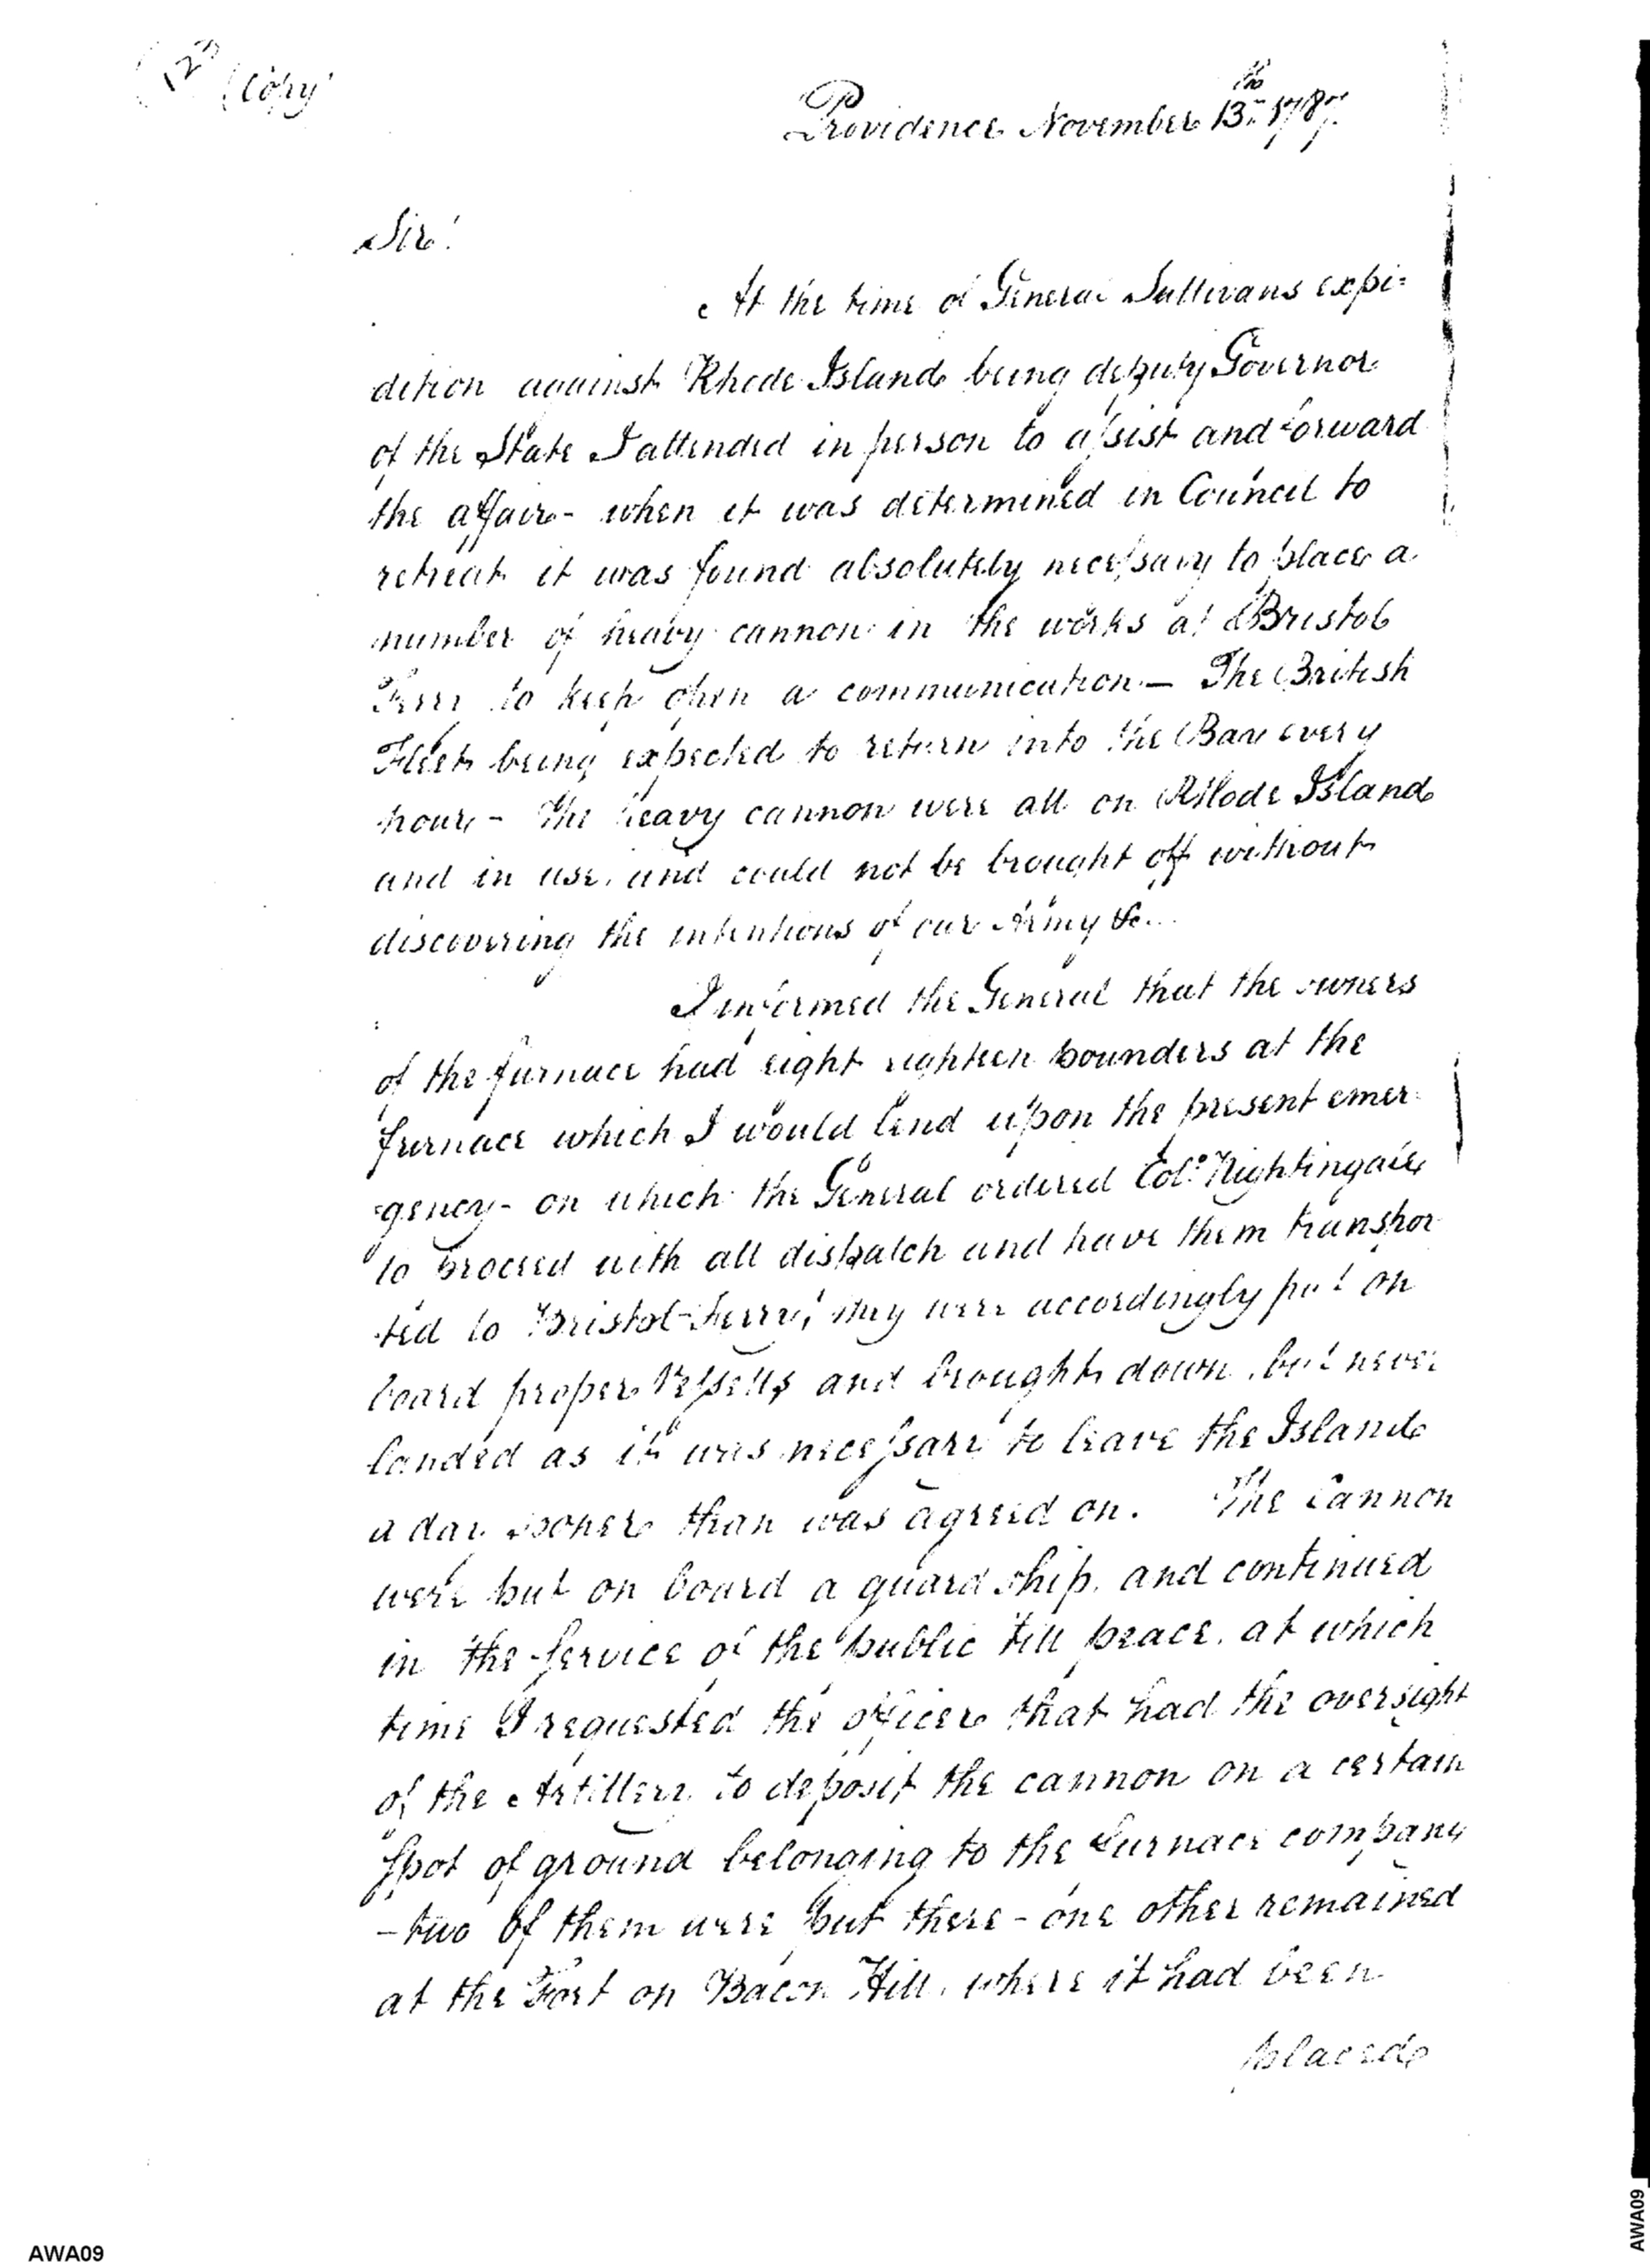 (12) (Copy)
Providence November 13th. 1787.
Sir!
At the time of General Sullivans expi=
dition against Rhode Island being deputy Governor
of the State I attended in person to assist and forward
the affair - when it was determined in Council to
retreat it was found absolutely necessary to place a
number of heavy cannon in the works at Bristol
Ferry to keep open a communication — The British
Fleet being expected to return into the Bay every
hour - The heavy cannon were all on Rhode Island
and in use, and could not be brought off without
discovering the intentions of our Army &c...
I informed the General that the owners
of the furnace had eight eighteen pounders at the
furnace which I would lend upon the present emer
=gency - on which the General ordered Colo. Nightingale
to proceed with all dispatch and have them transpor
ted to Bristol-Ferry, they were accordingly put on
board proper Vessells and brought down, but never
landed as it was necessary to leave the Island
a day sooner than was agreed on. The Cannon
were put on board a guard ship, and continued
in the Service of the public till peace, at which
time I requested the officer that had the oversight
of the Artillery to deposit the cannon on a certain
Spot of ground belonging to the Furnace company
- two of them were put there - one other remained
at the Fort on Bacon Hill, where it had been
placed
AWA09
AWA09